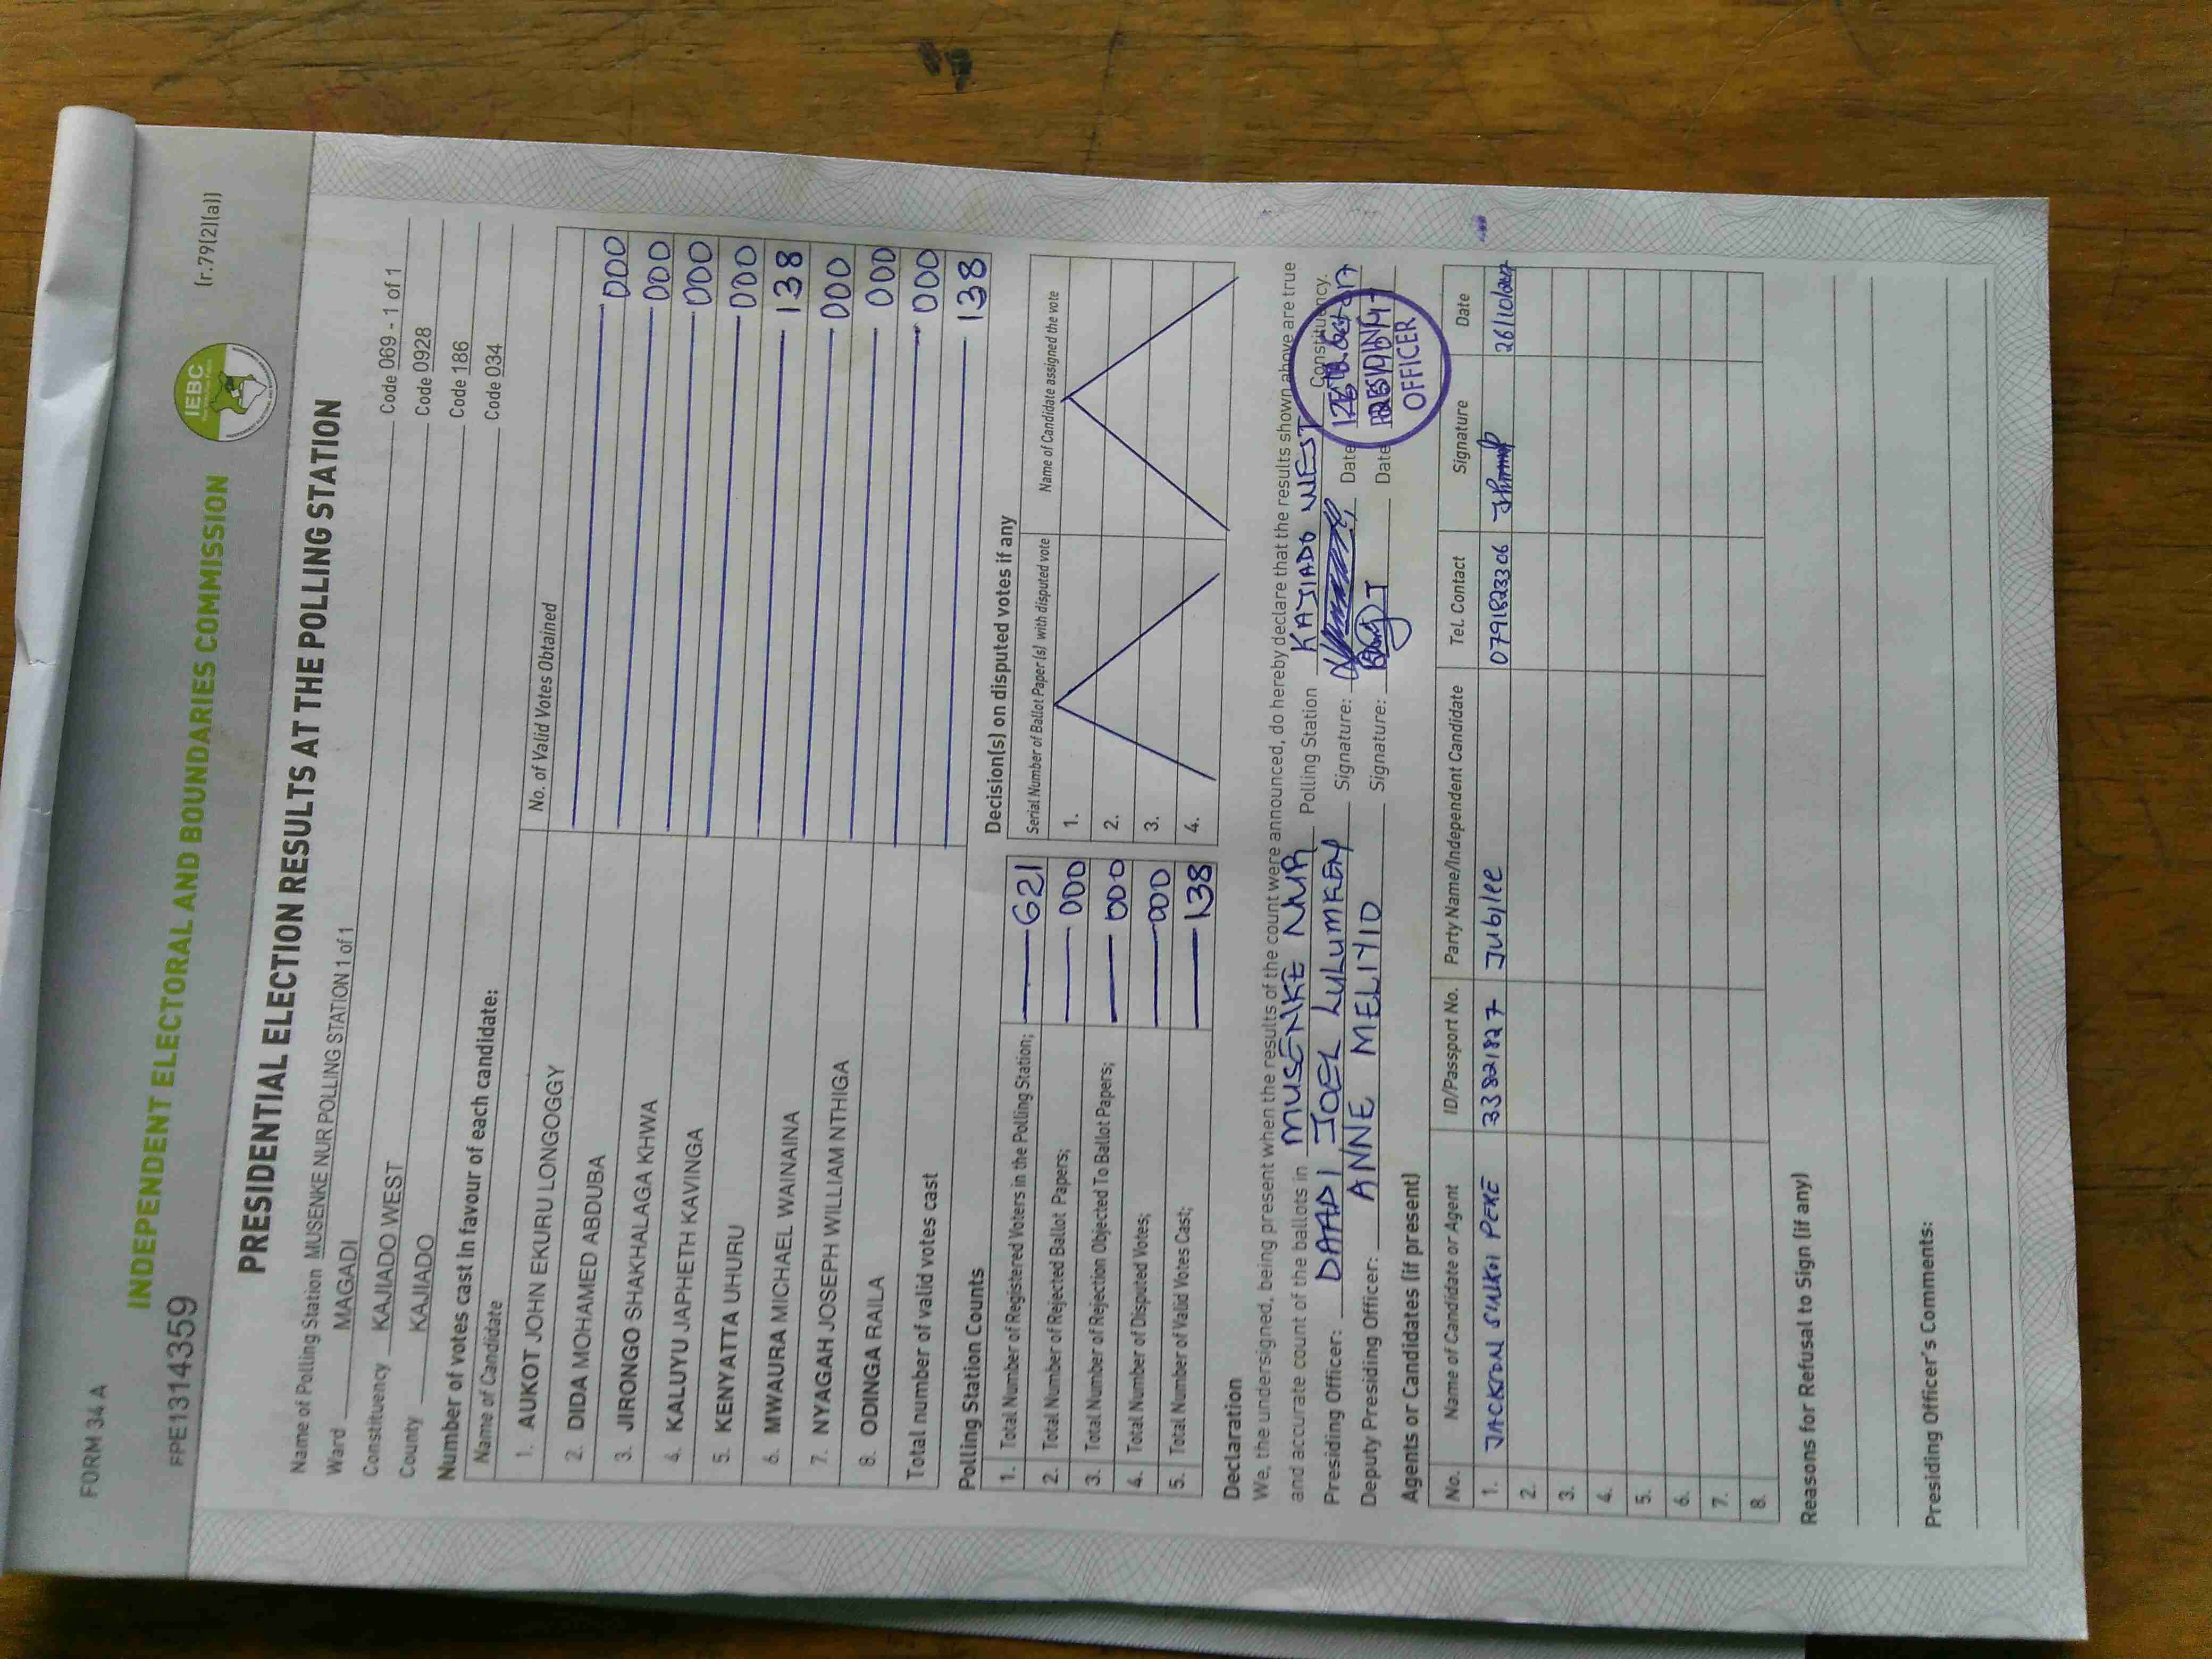 FORM 34 A
(r.79(2)(a))
FPE1314359
IEBC
INDEPENDENT ELECTORAL AND BOUNDARIES COMMISSION
PRESIDENTIAL ELECTION RESULTS AT THE POLLING STATION
Name of Polling Station MUSENKE NUR POLLING STATION 1 of 1 Code 069 - 1 of 1
Ward MAGADI Code 0928
Constituency KAJIADO WEST Code 186
County KAJIADO Code 034
Number of votes cast in favour of each candidate:
Name of Candidate No. of Valid Votes Obtained
1. AUKOT JOHN EKURU LONGOGGY 000
2. DIDA MOHAMED ABDUBA 000
3. JIRONGO SHAKHALAGA KHWA 000
4. KALUYU JAPHETH KAVINGA 000
5. KENYATTA UHURU 138
6. MWAURA MICHAEL WAINAINA 000
7. NYAGAH JOSEPH WILLIAM NTHIGA 000
8. ODINGA RAILA 000
Total number of valid votes cast 138
Polling Station Counts
1. Total Number of Registered Voters in the Polling Station; 621
2. Total Number of Rejected Ballot Papers; 000
3. Total Number of Rejection Objected To Ballot Papers; 000
4. Total Number of Disputed Votes; 000
5. Total Number of Valid Votes Cast; 138
Decision(s) on disputed votes if any
Serial Number of Ballot Paper(s) with disputed vote Name of Candidate assigned the vote
1.
2.
3.
4.
Declaration
We, the undersigned, being present when the results of the count were announced, do hereby declare that the results shown above are true
and accurate count of the ballots in MUSENKE NUR Polling Station KAJIADO WEST Constituency.
Presiding Officer: DAAPI JOEL LULUMKEN Signature: Date
Deputy Presiding Officer: ANNE MELIYIO Signature: Date
PRESIDING
OFFICER
Agents or Candidates (if present)
No. Name of Candidate or Agent ID/Passport No. Party Name/Independent Candidate Tel. Contact Signature Date
1. JACKSON SUNKOI PEKE 33821827 Jubilee 0791823306 26/10/2017
2.
3.
4.
5.
6.
7.
8.
Reasons for Refusal to Sign (if any)
Presiding Officer's Comments: